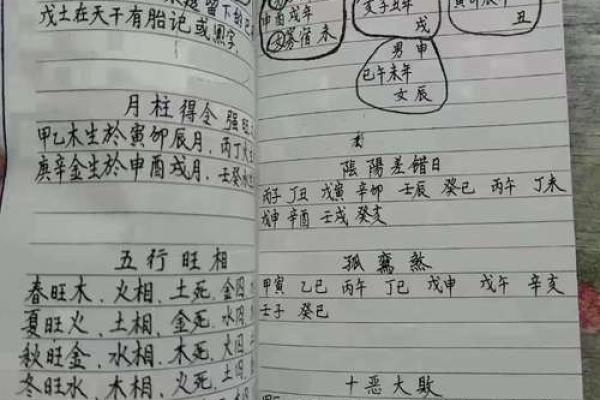 留下的
戊土在天干有胎记或黑字
月柱得令 强旺
甲乙木生於寅卯辰月，丙丁火
庚辛金生於申酉戌月，壬癸水
五行旺相
春旺木，火相，土死，金囚
夏旺火，土相，金死，水囚
秋旺金，水相，木死，火囚
冬旺水，木相，火死，土囚
申酉戌年
亥子丑年
戌
丑
男 申
巳午未年
女 辰
陰陽差错日
丙子 丁丑 戊寅 辛卯 壬辰 癸巳 丙午 丁未
戊申 辛酉 壬戌 癸亥
孤鸞煞
甲寅 乙巳 丙午 丁巳 戊申 戊午 辛亥
壬子 癸巳
十恶大敗